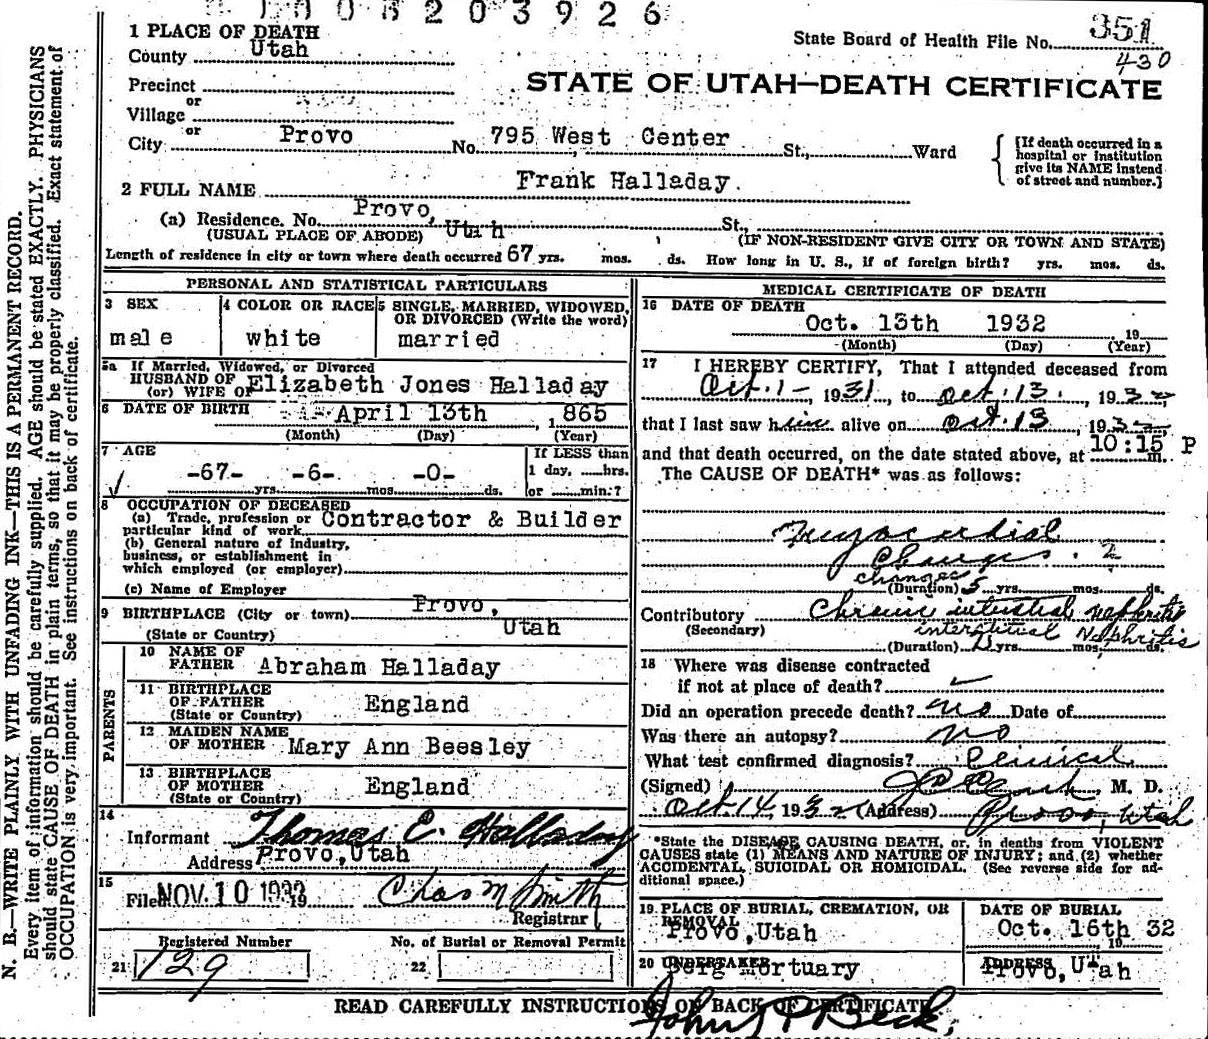 1 0 0 8 2 0 3 9 2 6
351
430
1 PLACE OF DEATH
County Utah
State Board of Health File No.
Precinct
or
Village
or
City Provo No. 795 West Center St., Ward
STATE OF UTAH—DEATH CERTIFICATE
[If death occurred in a
hospital or institution
give its NAME instead
of street and number.]
2 FULL NAME Frank Halladay.
(a) Residence. No. Provo, Utah St.,
(USUAL PLACE OF ABODE) (IF NON-RESIDENT GIVE CITY OR TOWN AND STATE)
Length of residence in city or town where death occurred 67 yrs. mos. ds. How long in U. S., if of foreign birth? yrs. mos. ds.
PERSONAL AND STATISTICAL PARTICULARS
3 SEX
male
4 COLOR OR RACE
white
5 SINGLE, MARRIED, WIDOWED,
OR DIVORCED (Write the word)
married
5a If Married, Widowed, or Divorced
HUSBAND OF
(or) WIFE OF Elizabeth Jones Halladay
6 DATE OF BIRTH April 13th , 1865
(Month) (Day) (Year)
7 AGE
-67- yrs. -6- mos. -0- ds.
If LESS than
1 day, ......hrs.
or ......min.?
8 OCCUPATION OF DECEASED
(a) Trade, profession or
particular kind of work Contractor & Builder
(b) General nature of industry,
business, or establishment in
which employed (or employer)
(c) Name of Employer
9 BIRTHPLACE (City or town) Provo,
(State or Country) Utah
PARENTS
10 NAME OF
FATHER Abraham Halladay
11 BIRTHPLACE
OF FATHER England
(State or Country)
12 MAIDEN NAME
OF MOTHER Mary Ann Beesley
13 BIRTHPLACE
OF MOTHER England
(State or Country)
14
Informant Thomas E. Halladay
Address Provo, Utah
15
Filed NOV. 10 1932 19
Chas M Smith
Registrar
Registered Number
21 129
No. of Burial or Removal Permit
22
MEDICAL CERTIFICATE OF DEATH
16 DATE OF DEATH
Oct. 13th 1932 19
(Month) (Day) (Year)
17 I HEREBY CERTIFY, That I attended deceased from
Oct. 1 - , 1931, to Oct. 13. , 1932,
that I last saw him alive on Oct. 13 , 1932,
and that death occurred, on the date stated above, at 10:15 P m.
The CAUSE OF DEATH* was as follows:
Myocardial
Changes. ?
changes
(Duration) 5 yrs. mos. ds.
Contributory Chronic interstitial nephritis
(Secondary) interstitual Nephritis
(Duration) yrs. mos. ds.
18 Where was disease contracted
if not at place of death?
Did an operation precede death? no Date of
Was there an autopsy? no
What test confirmed diagnosis? Clinical
(Signed) Clark, M. D.
Oct. 14, 1932 (Address) Provo, Utah
*State the DISEASE CAUSING DEATH, or, in deaths from VIOLENT
CAUSES state (1) MEANS AND NATURE OF INJURY; and (2) whether
ACCIDENTAL, SUICIDAL OR HOMICIDAL. (See reverse side for ad-
ditional space.)
19 PLACE OF BURIAL, CREMATION, OR
REMOVAL
Provo, Utah
DATE OF BURIAL
Oct. 16th 32
19
20 UNDERTAKER
Berg Mortuary
ADDRESS
Provo, Utah
READ CAREFULLY INSTRUCTIONS ON BACK OF CERTIFICATE
John P Beck.
N. B.—WRITE PLAINLY WITH UNFADING INK—THIS IS A PERMANENT RECORD.
Every item of information should be carefully supplied. AGE should be stated EXACTLY. PHYSICIANS
should state CAUSE OF DEATH in plain terms, so that it may be properly classified. Exact statement of
OCCUPATION is very important. See instructions on back of certificate.